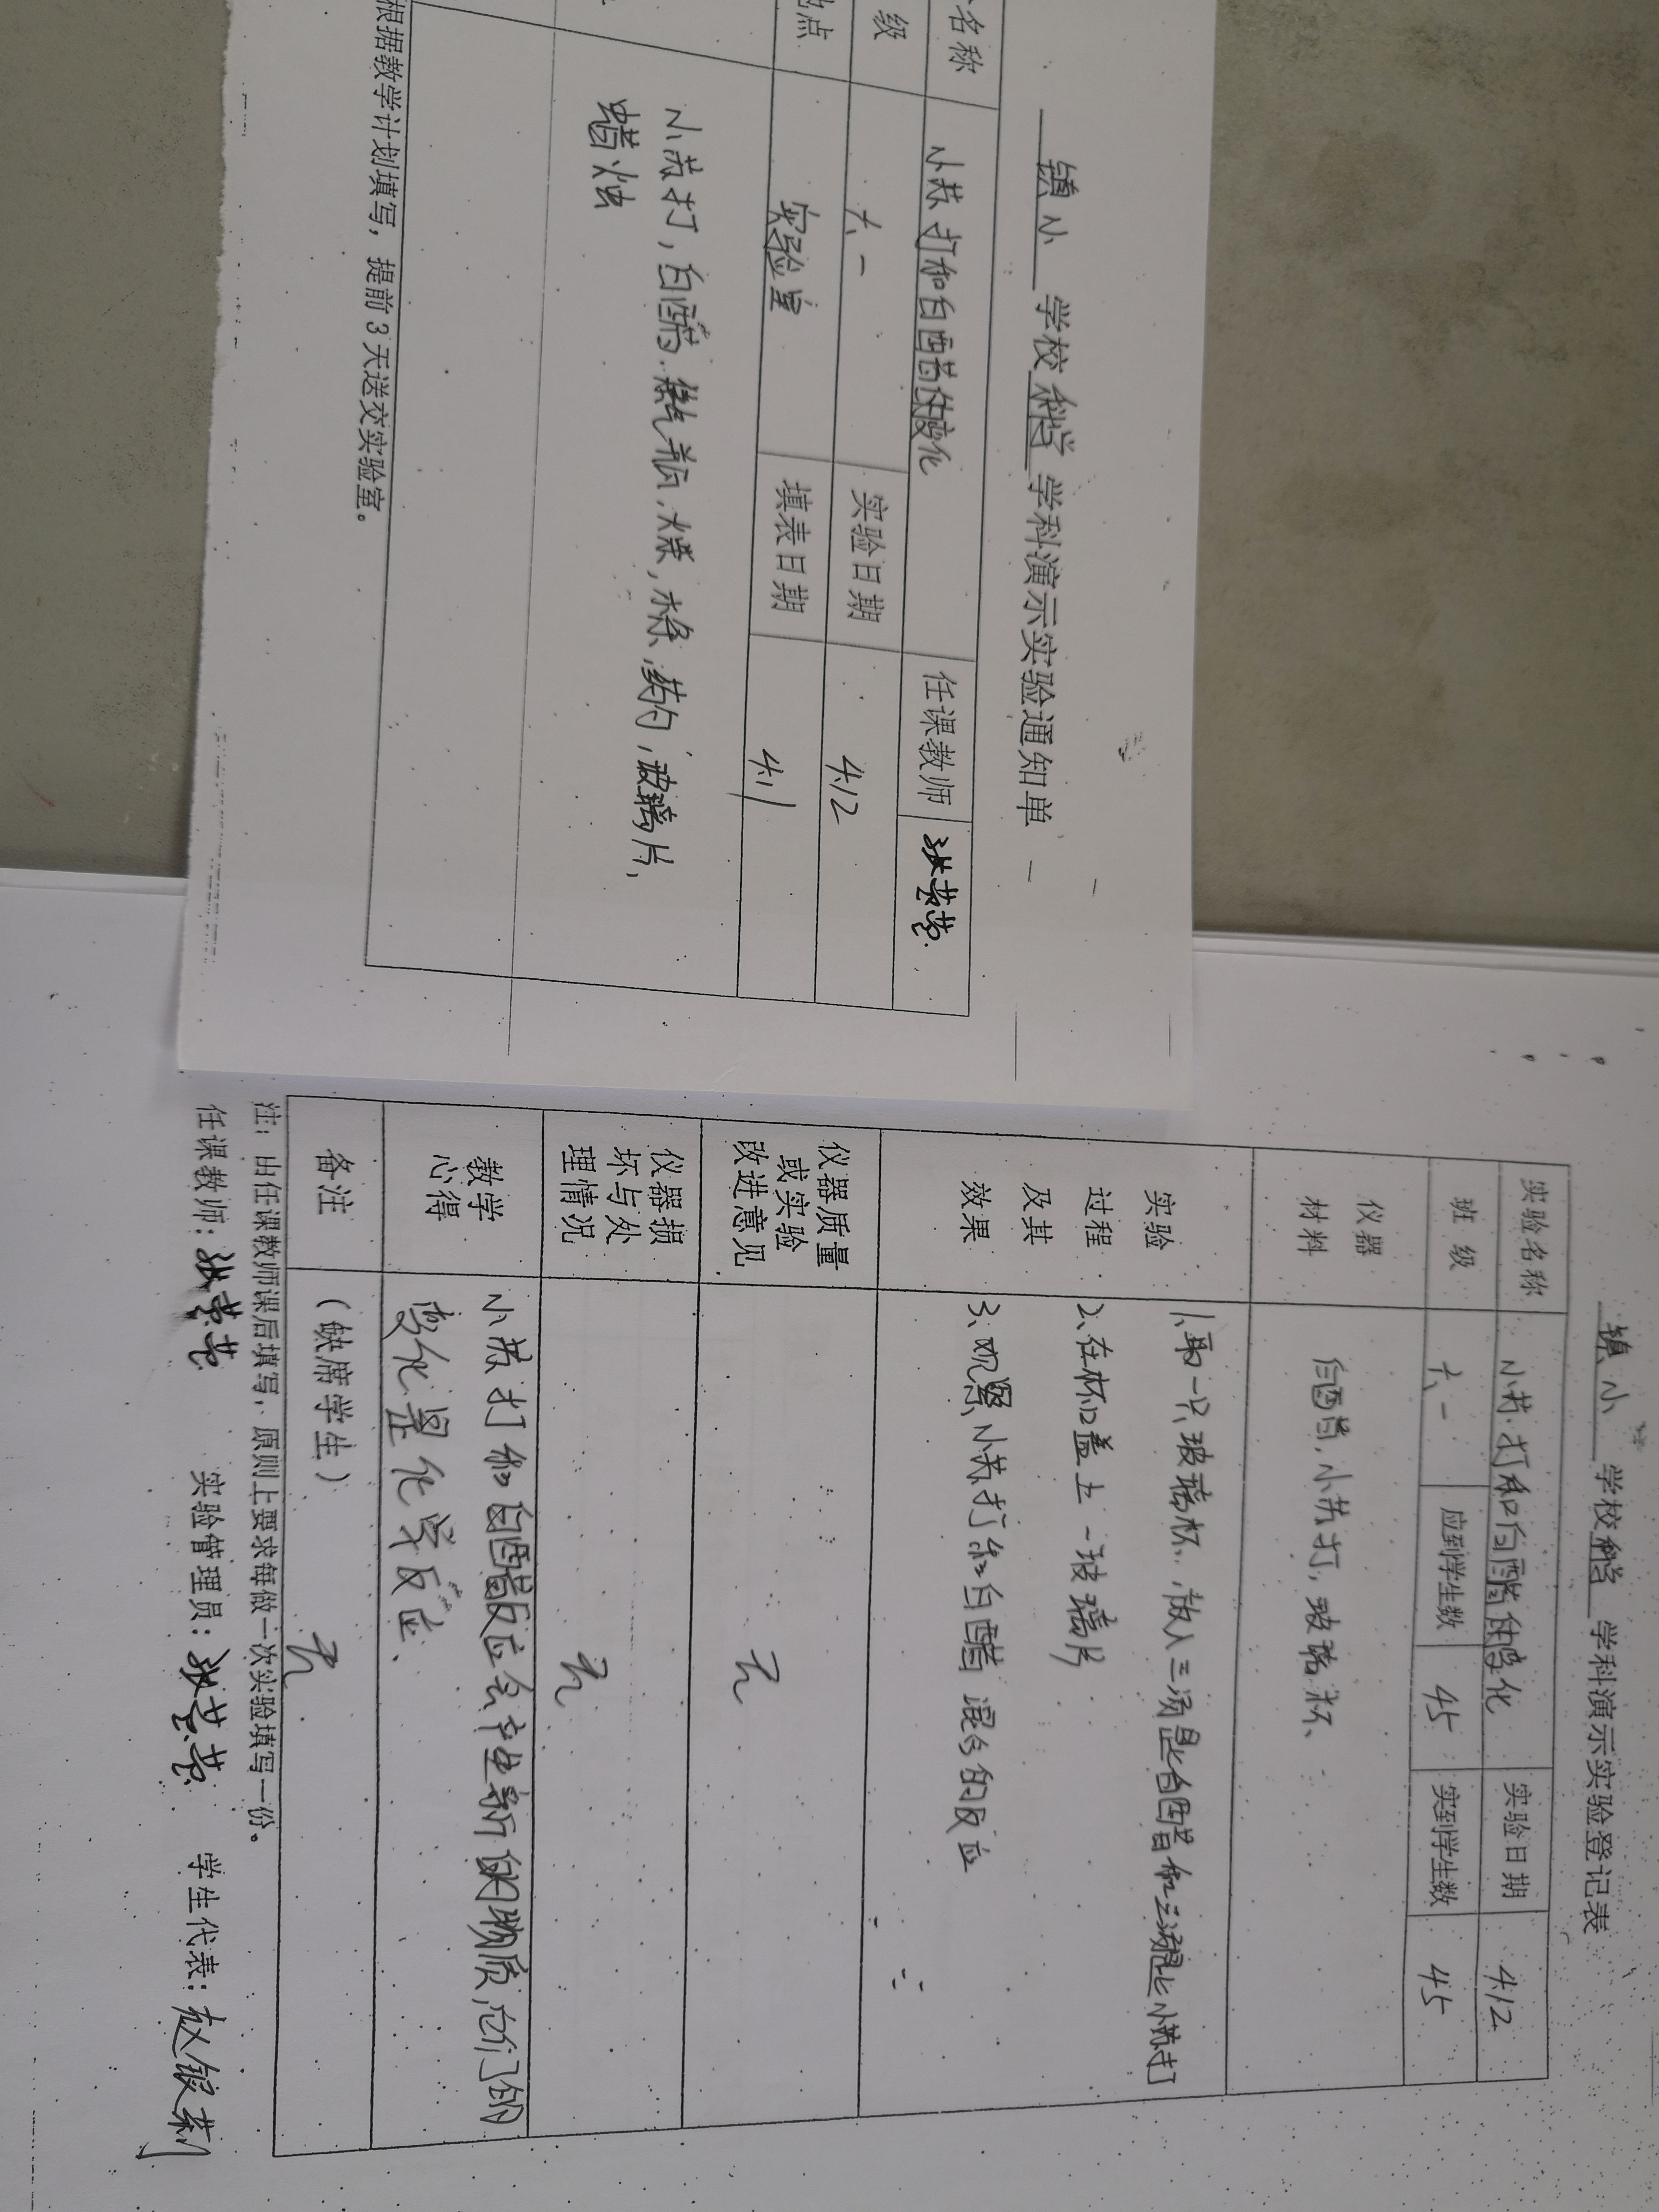 镇小 学校 科学 学科演示实验通知单
名称 小苏打和白醋的变化 任课教师
级 六一 实验日期 4.12
地点 实验室 填表日期 4.1
小苏打，白醋．集气瓶，火柴，木条，药勺，玻璃片，
蜡烛
根据教学计划填写，提前3天送交实验室。
镇小 学校 科学 学科演示实验登记表
实验名称 小苏打和白醋的变化 实验日期 4.12
班级 六一 应到学生数 45 实到学生数 45
仪器材料 白醋，小苏打，玻璃杯、
实验过程及其效果
1、取一只玻璃杯，放入三汤匙白醋和三汤匙小苏打
2、在杯口盖上一玻璃片
3、观察小苏打和白醋混合的反应
仪器质量或实验改进意见 无
仪器损坏与处理情况 无
教学心得 小苏打和白醋反应会产生新的物质，它们的
变化是化学反应．
备注 （缺席学生） 无
注：由任课教师课后填写，原则上要求每做一次实验填写一份。
任课教师： 实验管理员： 学生代表：赵银莉